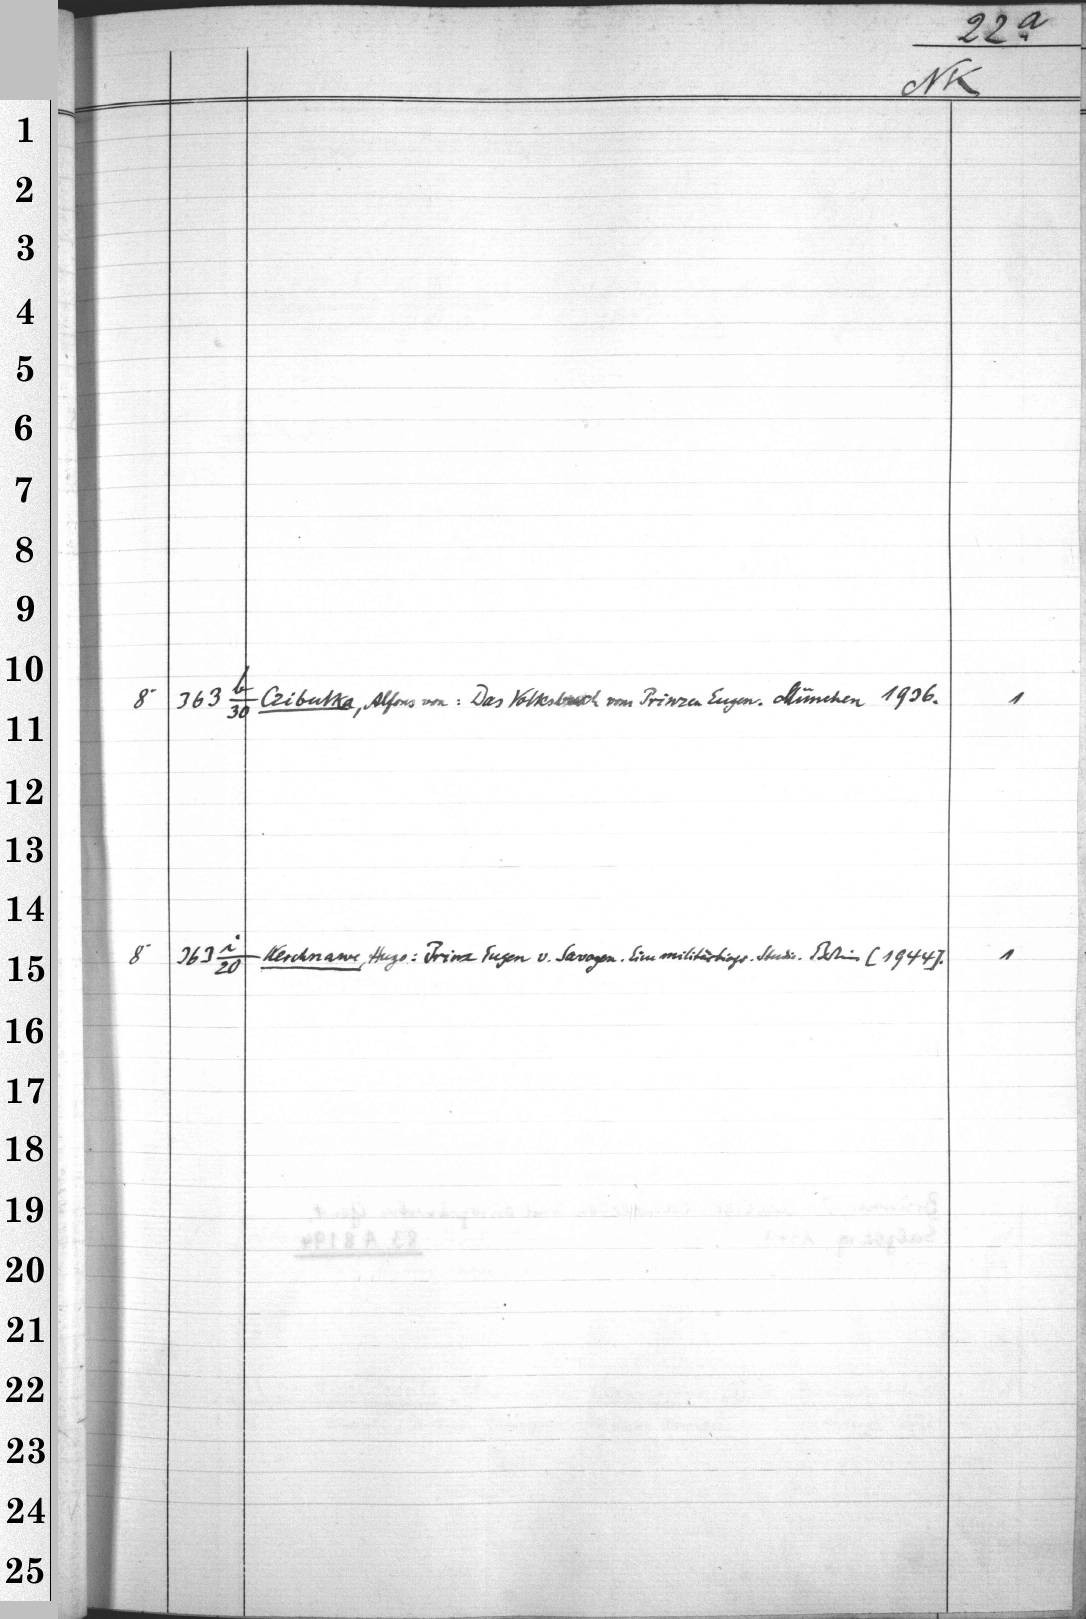 22a
NK
1
2
3
4
5
6
7
8
9
10
8° 363 b/30 Czibulka, Alfons von: Das Volksbuch vom Prinzen Eugen. München 1936. 1
11
12
13
14
8° 363 i/20 Kerchnawe, Hugo: Prinz Eugen v. Savoyen. Eine militärbiogr. Studie. Berlin [1944]. 1
15
16
17
18
19
83 A 8194
20
21
22
23
24
25